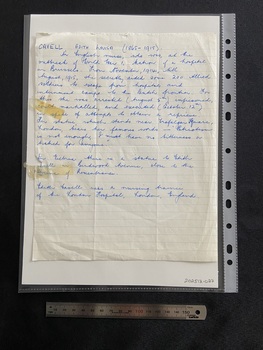 CAVELL EDITH LOUISA (1865-1915)
An English nurse, who was at the
outbreak of World War I, matron of a hospital
in Brussels. From November, 1914, till
August 1915, she secretly aided over 200 Allied
soldiers to escape from hospital and
internment camps to the Dutch frontier. For
this she was arrested (August 5th) imprisoned,
court-martialled, and executed (October 12th)
in spite of attempts to obtain a reprieve.
Her statue, which stands near Trafalgar Square,
London, bears her famous words "Patriotism
is not enough; I must have no bitterness or
hatred for anyone.
In Melbourne there is a statue to Edith
Cavell in Birdwood Avenue, close to the
of Remembrance.
Edith Cavell was a nursing trainee
of the London Hospital, London, England